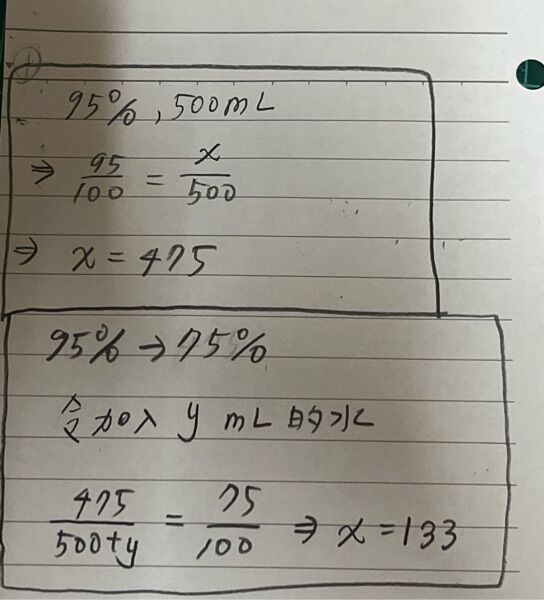 95%, 500mL
⇒ 95/100 = x/500
⇒ x = 475
95% → 75%
令加入 y mL 的水
475/500+y = 75/100 ⇒ x = 133